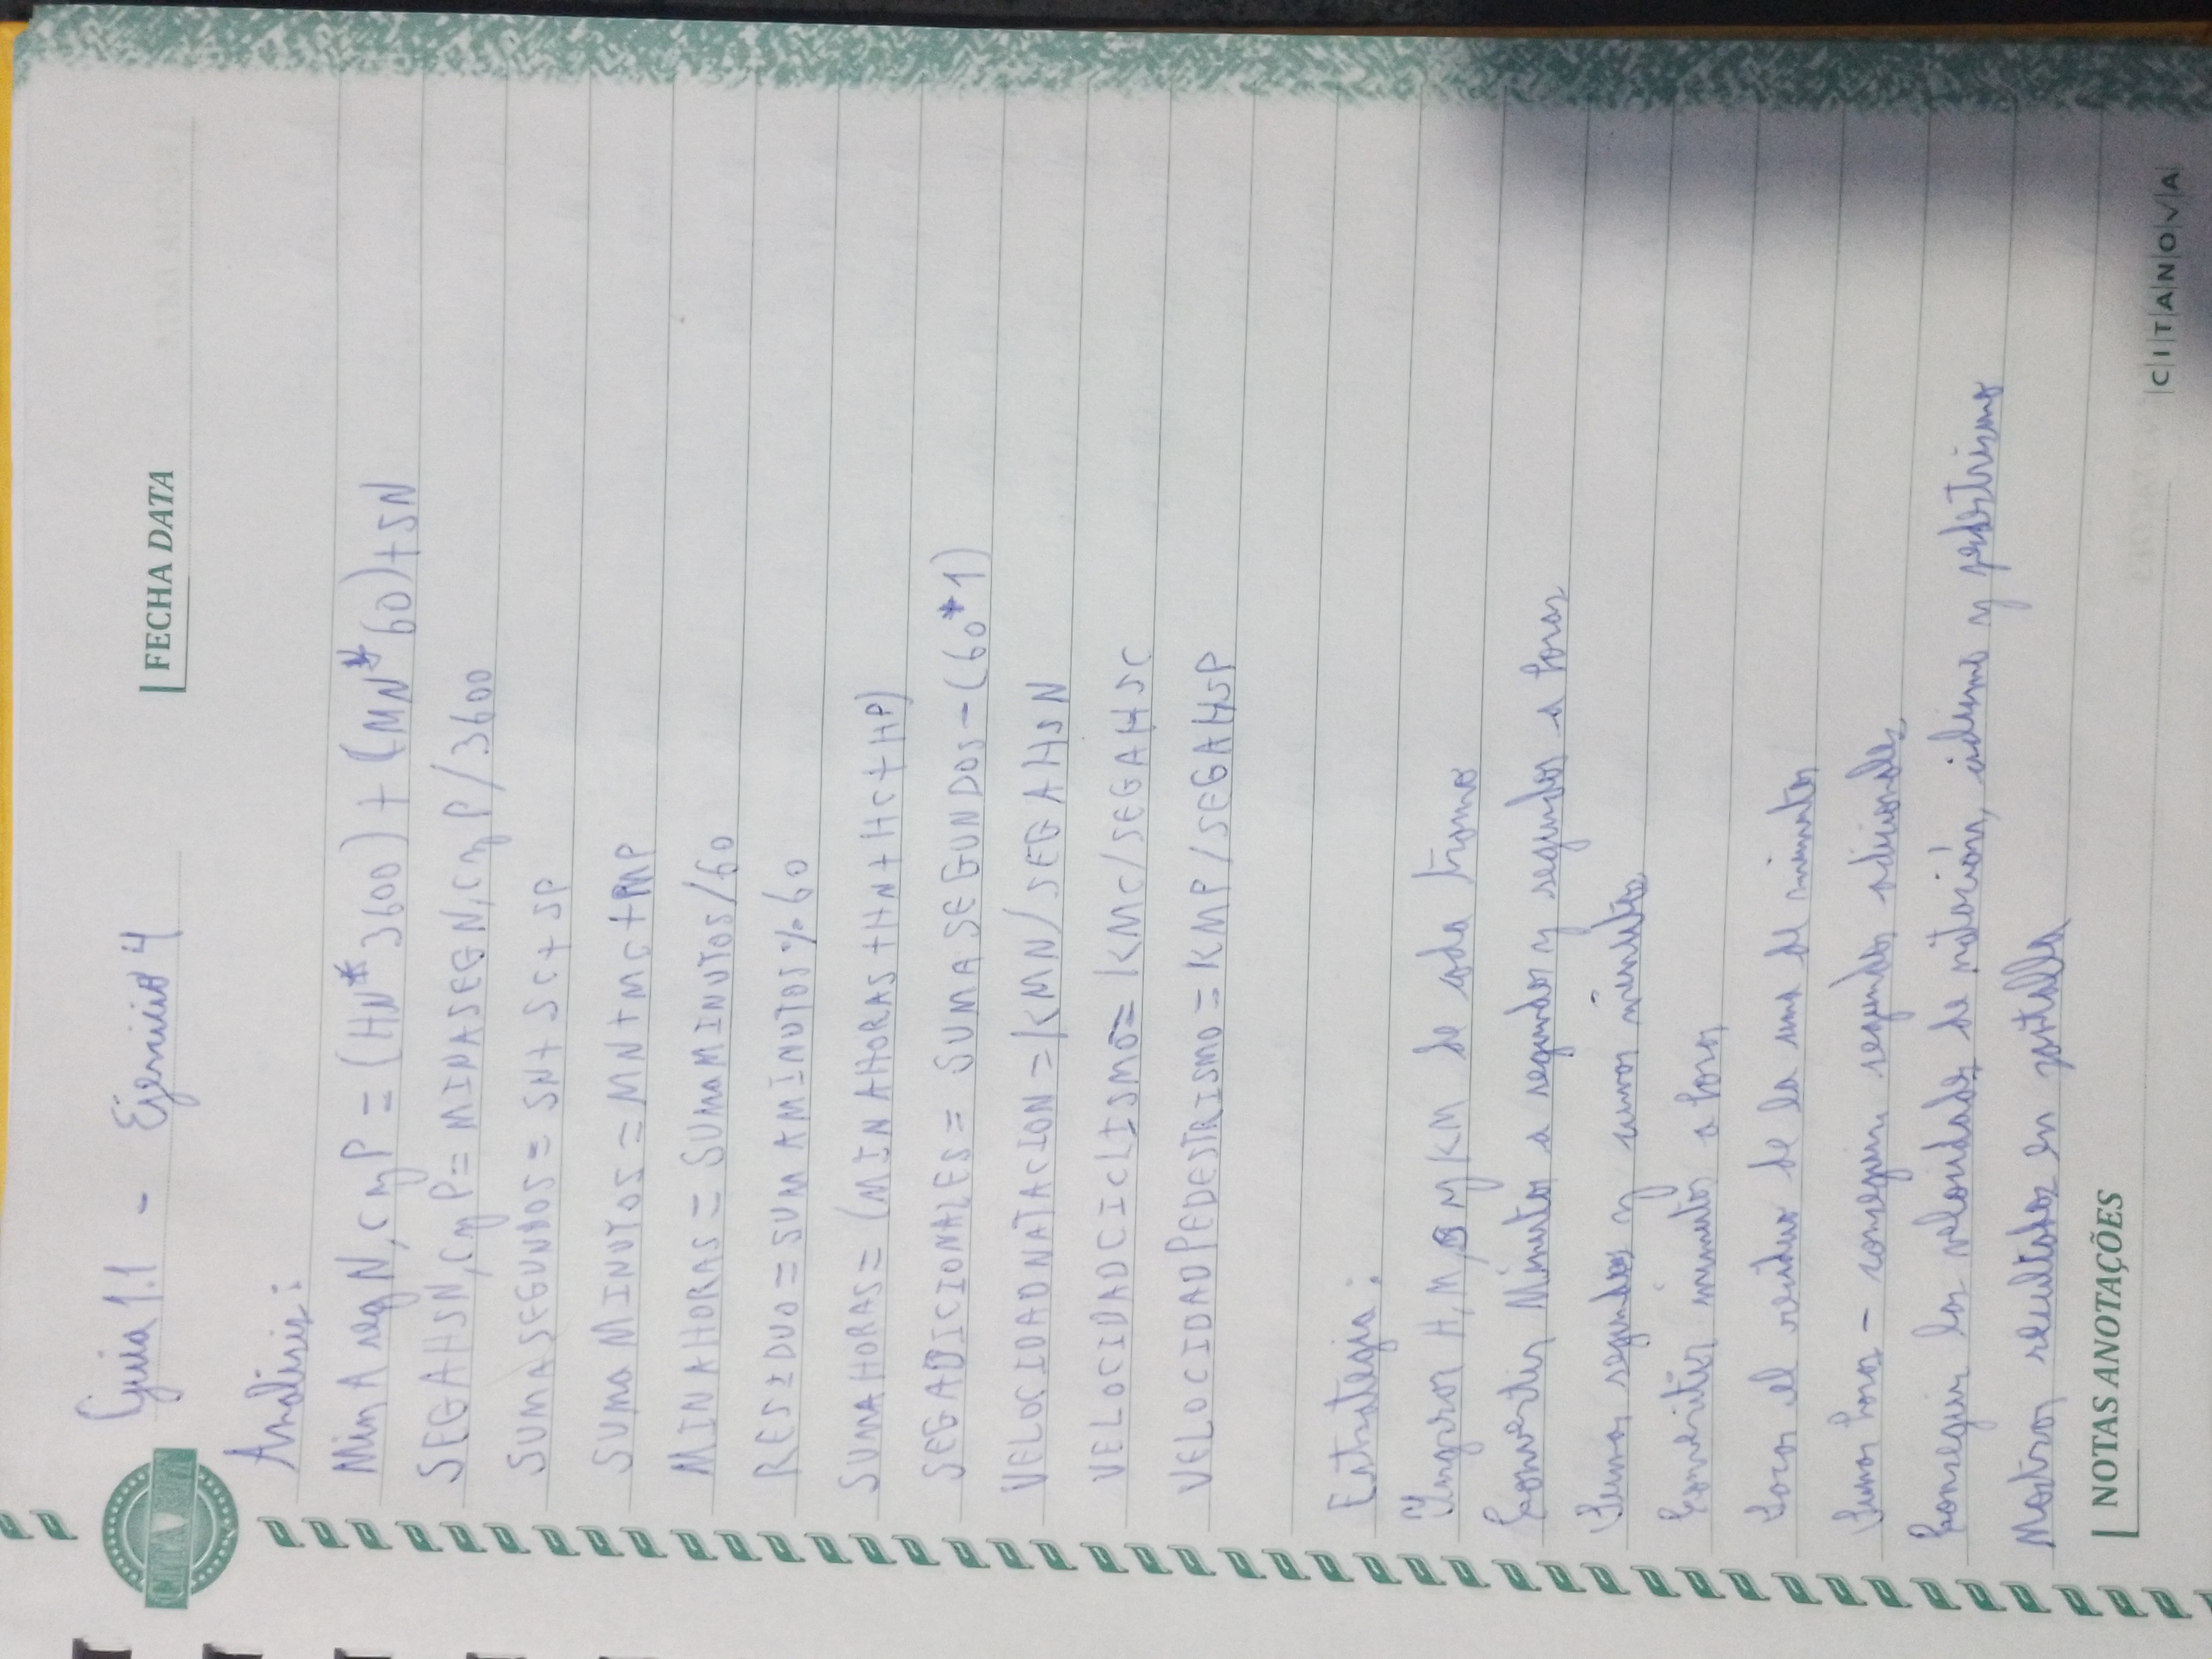 Guia 1.1 - Ejercicio 4
FECHA DATA
Analisis:
Min A seg N, C y P = (HN*3600) + (MN*60)+SN
SEGAHSN, C y P = MINASEGN, C y P/3600
SUMASEGUNDOS = SN+ SC+ SP
SUMaMINUTOS = MN+MC+MP
MINAHORAS = SUMaMINUTOS/60
RESIDUO = SUMAMINUTOS%60
SUMAHORAS= (MINAHORAS+HN+HC+HP)
SEGADICIONALES = SUMASEGUNDOS-(60*1)
VELOCIDADNATACION =KMN/SEGAHSN
VELOCIDADCICLISMO= KMC/SEGAHSC
VELOCIDADPEDESTRISMO = KMP/SEGAHSP
Estrategia:
Ingresar H, M, S y KM de cada tramo
Convertir Minutos a segundos y segundos a horas
Sumar segundos y sumar minutos
Convertir minutos a horas
Sacar el residuo de la suma de minutos
Sumar horas - conseguir segundos adicionales
Conseguir las velocidades de natación, ciclismo y pedestrismo
Mostrar resultados en pantalla
NOTAS ANOTAÇÕES
CITANOVA